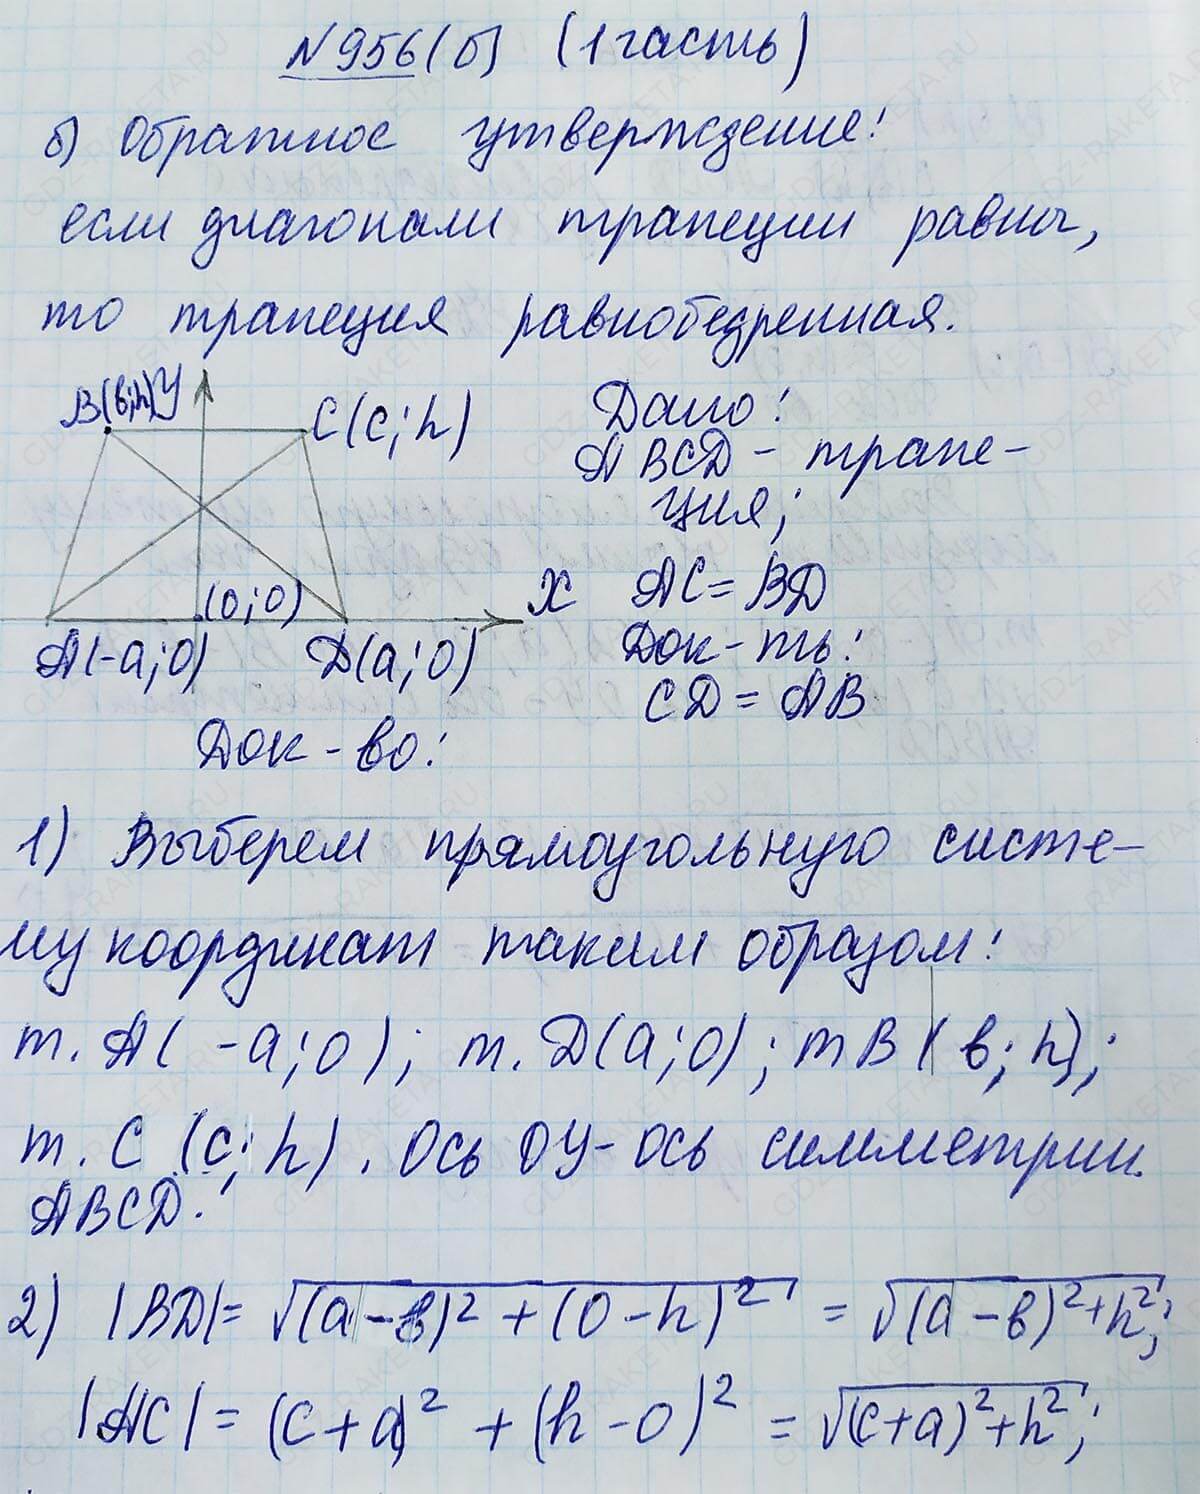 №956(б) (1 часть)
б) Обратное утверждение:
если диагонали трапеции равны,
то трапеция равнобедренная.
B(в;h) У
C(c;h)
Дано:
ABCD - трапе-
ция;
(0;0)
X
AC = BD
A(-a;0)
Д(a;0)
Док-ть:
CD = AB
Док-во:
1) Выберем прямоугольную систе-
му координат таким образом:
т. A(-a;0); т. Д(a;0); т B(в;h);
т. C (c;h). Ось ОУ-ось симметрии
ABCD.
2) |BD| = √(a-в)²+(0-h)² = √(a-в)²+h²;
|AC| = (c+a)² + (h-0)² = √(c+a)²+h²;
GDZ-RAKETA.RU